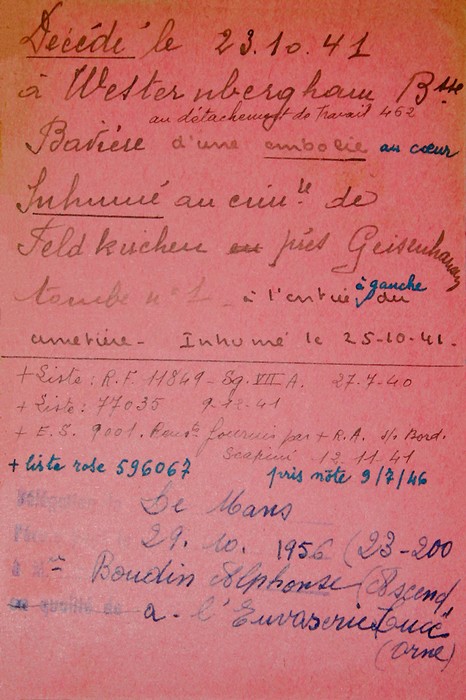 Décédé le 23.10.41
à Westernbergham Bsse
au détachement de Travail 462
Bavière d'une embolie au cœur
Inhumé au cim.re de
Feldkirchen en près Geisenhausen
tombe n° 1 - à l'entrée à gauche du
cimetière - Inhumé le 25-10-41.
+ Liste: R.F. 11849 - Sg. VII A. 27.7-40
+ Liste: 77035 9-12-41
+ E.S. 9001. Rens.ts fournis par + R.A. s/s Bord.
Scapini 12.11.41
+ liste rose 596067 pris note 9/7/46
Délégation Le Mans
29. 10. 1956 (23-200
à M. Boudin Alphonse (Ascend,
en qualité de a - l'Euvaserie
(Orne)